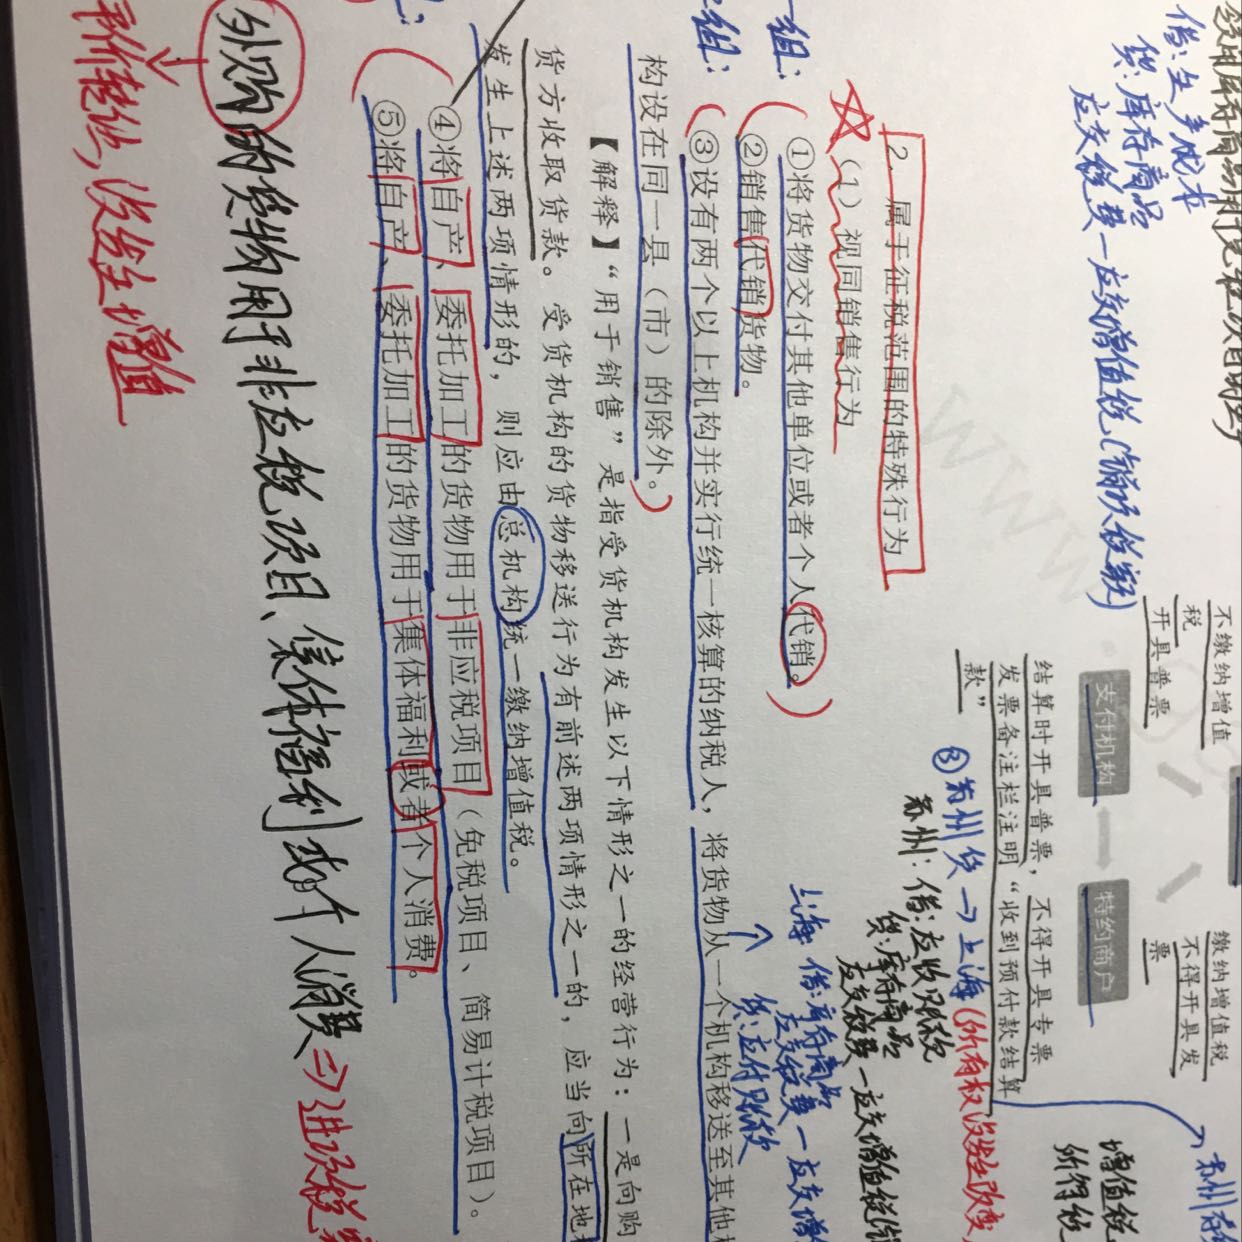 借:生产成本
贷:库存商品
应交税费一应交增值税(销项税额)
不缴纳增值
税
开具普票
支付机构
特约商户
缴纳增值税
不得开具发
票
结算时开具普票,不得开具专票
发票备注栏注明“收到预付款结算
款”
增值税
所得税
③苏州货→上海(所有权没发生改变
苏州:借:应收账款
贷:库存商品
应交税费一应交增值税(销
上海 借:库存商品
应交税费一应交增
贷:应付账款
2. 属于征税范围的特殊行为
(1)视同销售行为
一组:
①将货物交付其他单位或者个人代销。
②销售代销货物。
组:
③设有两个以上机构并实行统一核算的纳税人,将货物从一个机构移送至其他
构设在同一县(市)的除外。
【解释】“用于销售”是指受货机构发生以下情形之一的经营行为:一是向购
货方收取货款。受货机构的货物移送行为有前述两项情形之一的,应当向所在地
发生上述两项情形的,则应由总机构统一缴纳增值税。
④将自产、委托加工的货物用于非应税项目(免税项目、简易计税项目)。
⑤将自产、委托加工的货物用于集体福利或者个人消费。
外购的货物用于非应税项目、集体福利或个人消费⇒进项税
没发生增值